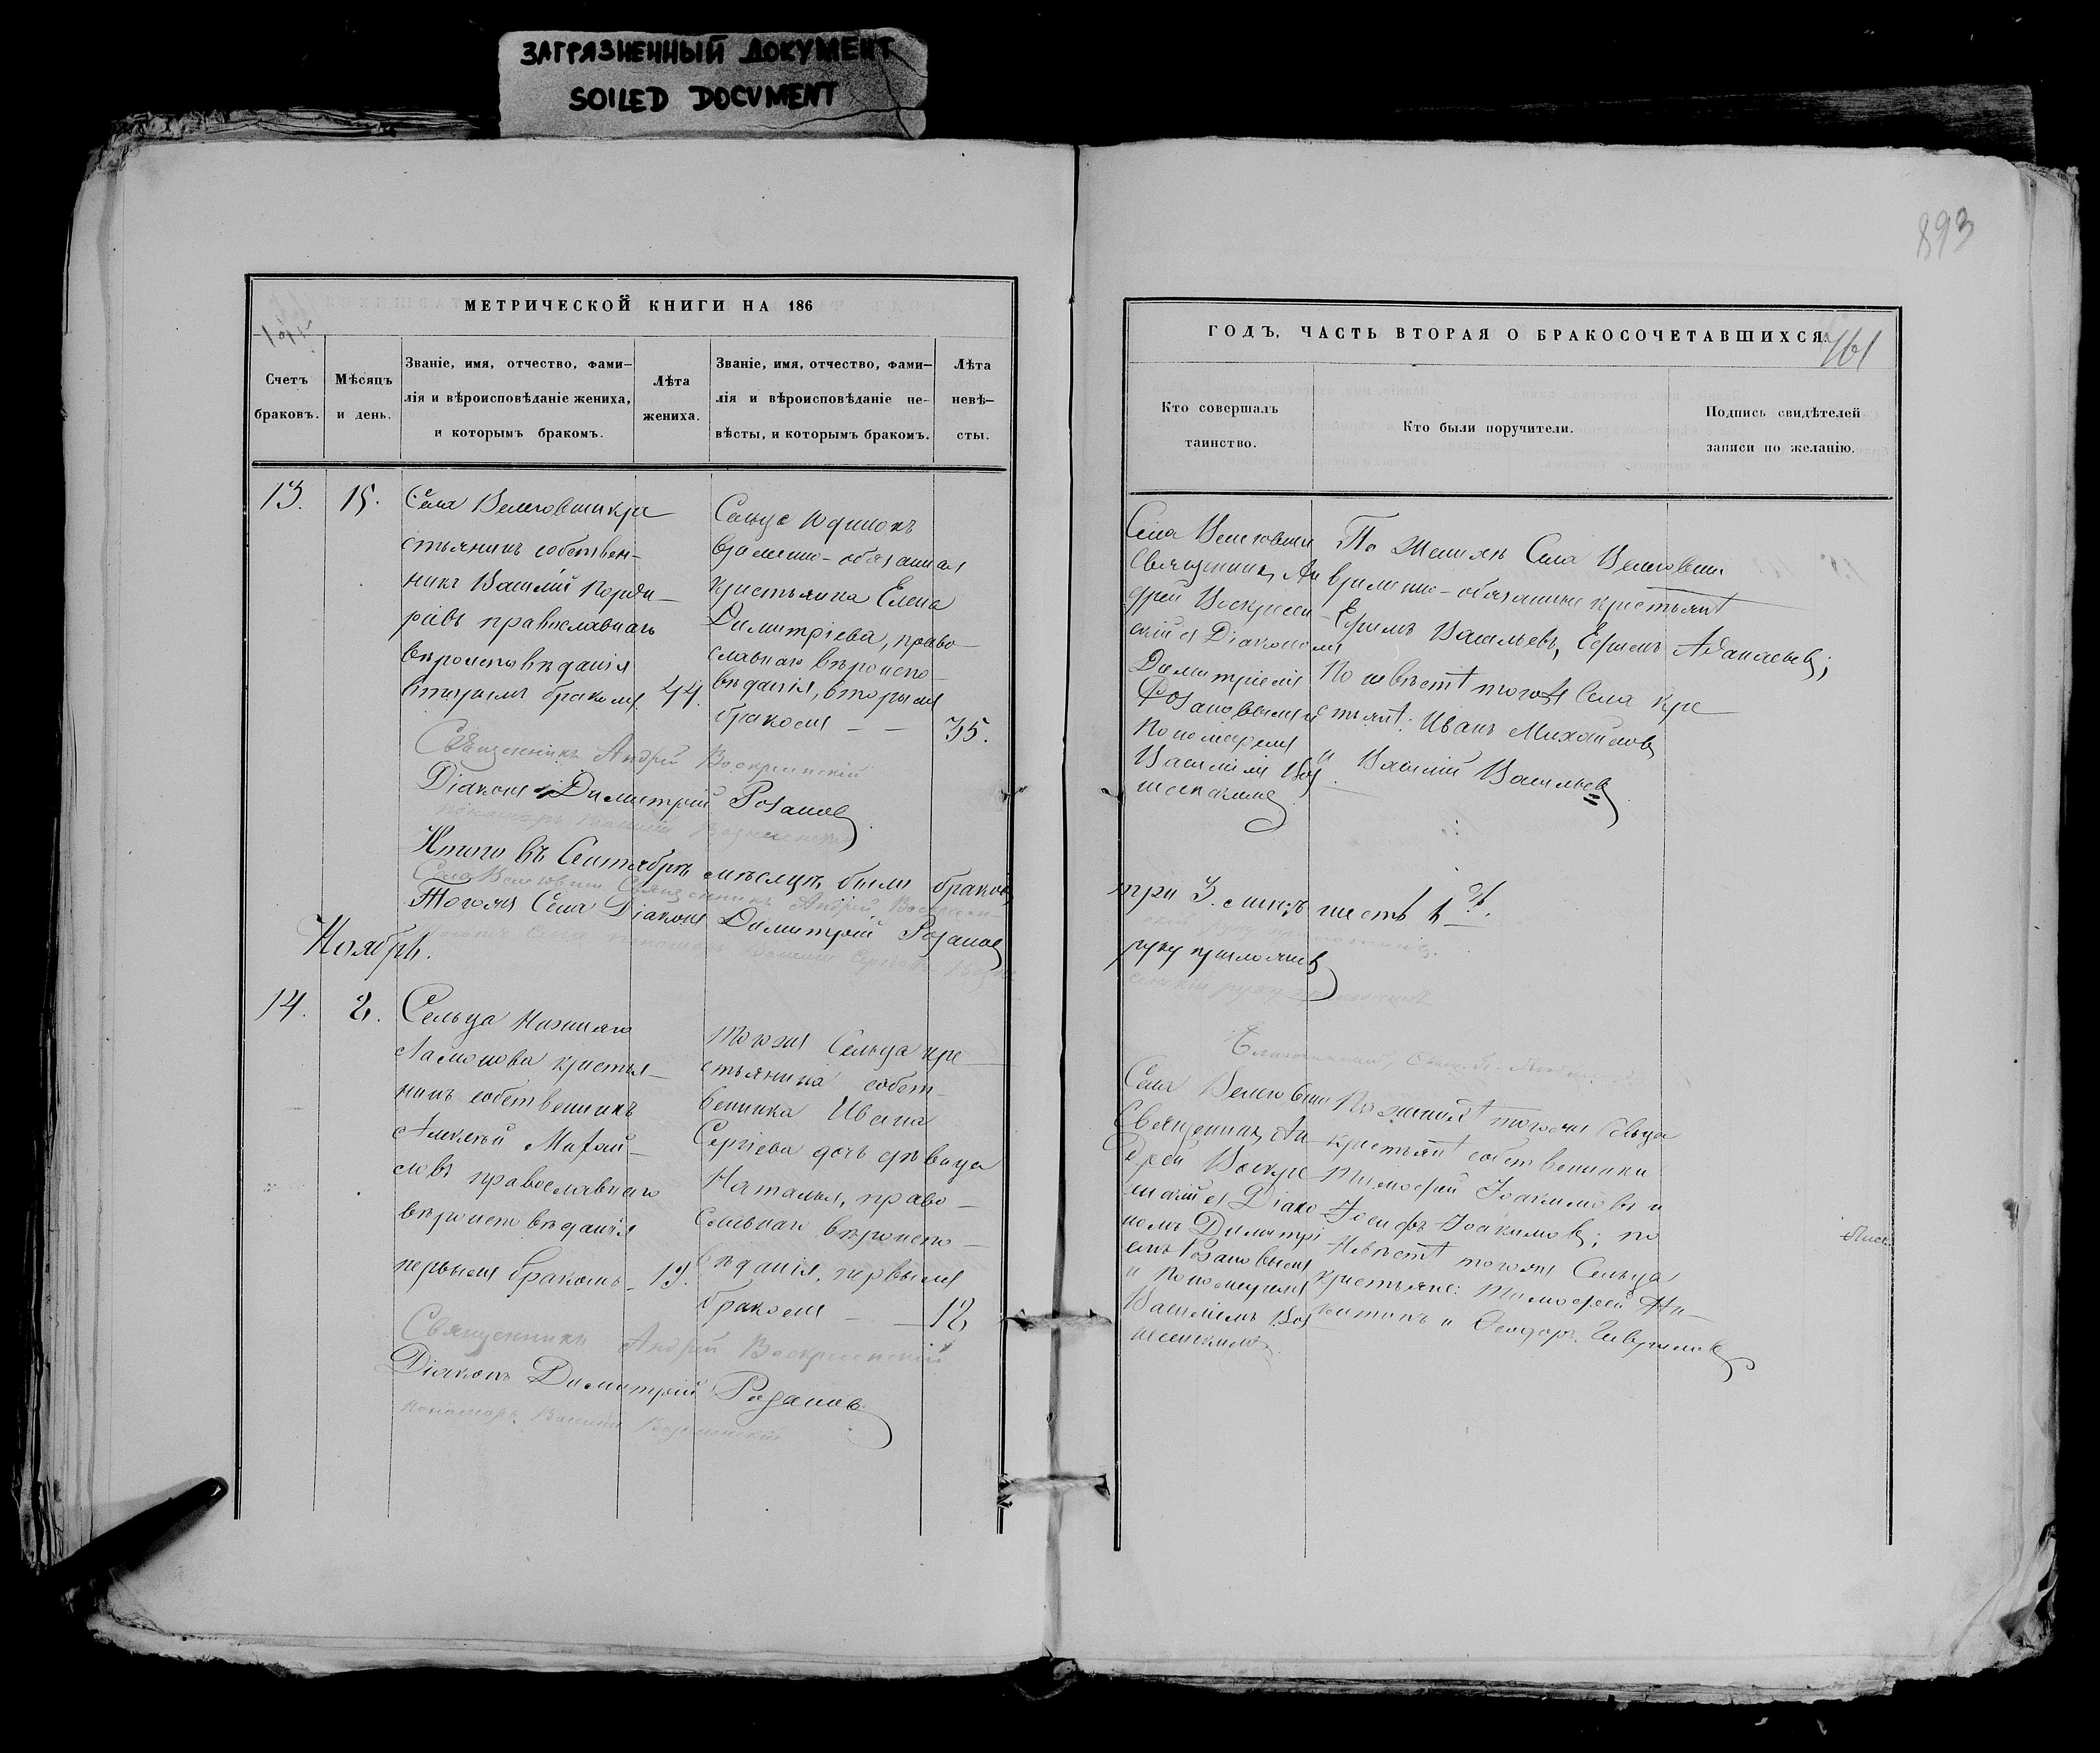 ЗАГРЯЗНЕННЫЙ ДОКУМЕНТ
SOILED DOCUMENT
МЕТРИЧЕСКОЙ КНИГИ НА 186
Счетъ браковъ.
Мѣсяцъ и день.
Званіе, имя, отчество, фами-
лія и вѣроисповѣданіе жениха,
и которымъ бракомъ.
Лѣта жениха.
Званіе, имя, отчество, фами-
лія и вѣроисповѣданіе не-
вѣсты, и которымъ бракомъ.
Лѣта невѣ-
сты.
13.
15.
Села Велеговши кре
стьянинъ собствен-
никъ Василій Порфи-
ріевъ православнаго
вѣроисповѣданія
вторымъ бракомъ 44.
Сельца
временно-обязанная
крестьянка Елена
Димитріева, право
славнаго вѣроиспо-
вѣданія, вторымъ
бракомъ — — 35.
Священникъ Андрей Воскресенскій
Діаконъ Димитрій Розановъ
пономарь Василій Вознесенскій
Итого въ Сентябрѣ мѣсяцѣ было браковъ
Села Велеговши Священникъ Андрей Воскресен-
Тогожъ Села Діаконъ Димитрій Розановъ
Тогожъ Села пономарь Василій
Ноябрь.
14.
2.
Сельца Нижняго
крестья-
нинъ собственникъ
Алексѣй Михай-
ловъ православнаго
вѣроисповѣданія
первымъ бракомъ 19.
Тогожъ Сельца кре
стьянина собст-
венника Ивана
Сергіева дочь дѣвица
Наталья, право-
славнаго вѣроиспо-
вѣданія, первымъ
бракомъ — — 18
Священникъ Андрей Воскресенскій
Діаконъ Димитрій Розановъ
пономарь Василій Вознесенскій
893
ГОДЪ, ЧАСТЬ ВТОРАЯ О БРАКОСОЧЕТАВШИХСЯ.
461
Кто совершалъ
таинство.
Кто были поручители.
Подпись свидѣтелей
записи по желанію.
Села Велеговши
Священникъ Ан
дрей Воскресен-
скій съ Діакономъ
Димитріемъ
Розановымъ и
пономаремъ
Василіемъ Воз
несенскимъ
По женихѣ Села Велеговши
временно-обязанные крестьяне
Ефимъ Васильевъ, Ефимъ Афанасьевъ;
по невѣстѣ тогожъ Села кре
стьяне: Иванъ Михайловъ
и Василій Васильевъ
три 3.
руку приложилъ
руку приложилъ
Села Велеговши
Священникъ Ан
дрей Воскре
сенскій съ Діако
номъ Димитрі
емъ Розановымъ
и пономаремъ
Василіемъ Воз
несенскимъ
По женихѣ тогожъ Сельца
крестьяне собственники
Тимофей Іоакимовъ и
Іосифъ Іоакимовъ; по
невѣстѣ тогожъ Сельца
крестьяне: Тимофей Ни-
китинъ и Феодоръ Гавриловъ